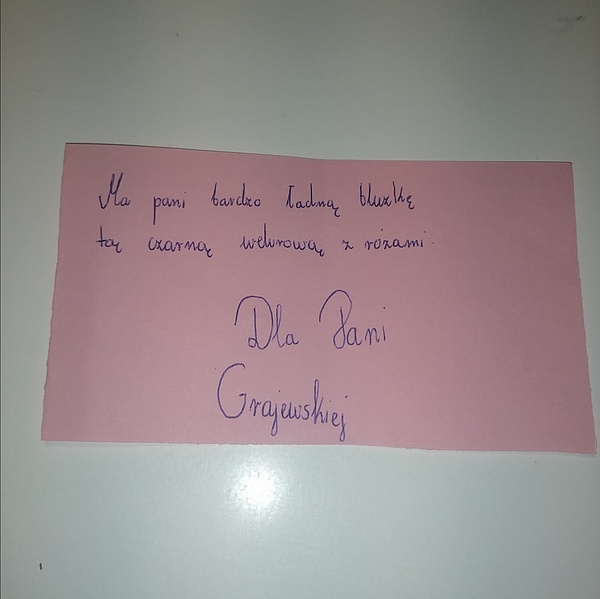 Ma pani bardzo ładną bluzkę
tą czarną welurową z różami.
Dla Pani
Grajewskiej